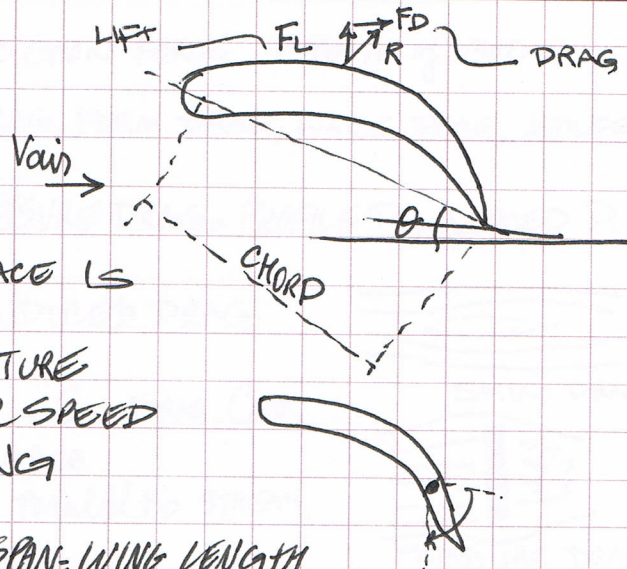 LIFT FL FD
R DRAG
Vair
θ
CHORD
ACE IS
TURE
SPEED
NG
SPAN = WING LENGTH